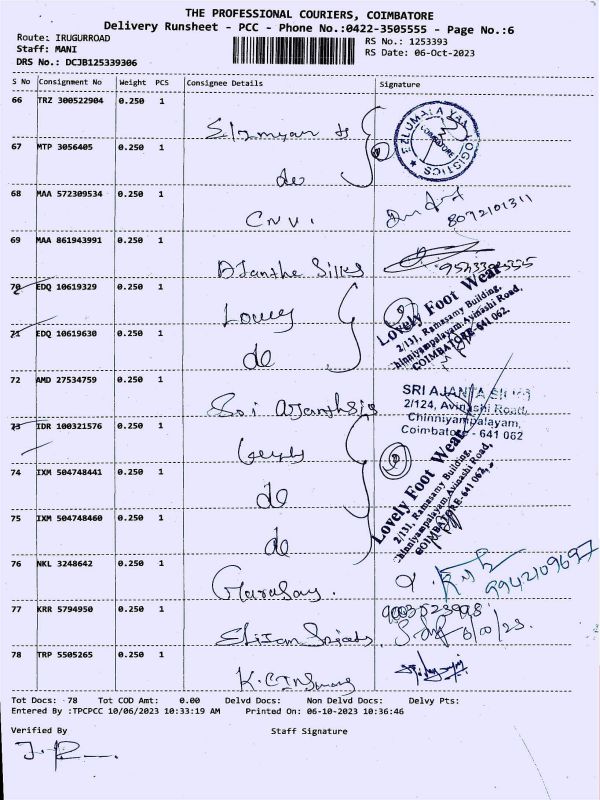 THE PROFESSIONAL COURIERS, COIMBATORE
Delivery Runsheet - PCC - Phone No.:0422-3505555 - Page No.:6
Route: IRUGURROAD
Staff: MANI
DRS No.: DCJB125339306
RS No.: 1253393
RS Date: 06-Oct-2023
S No Consignment No Weight PCS Consignee Details Signature
66 TRZ 300522904 0.250 1
EZLUMALAYAA LOGISTICS COIMBATORE
67 MTP 3056405 0.250 1
do
68 MAA 572309534 0.250 1
CNV. 8072101311
69 MAA 861943991 0.250 1
Silks
70 EDQ 10619329 0.250 1
Lovely Foot Wear
2/131, Ramasamy Building,
Chinniyampalayam, Avinashi Road,
COIMBATORE-641 062.
71 EDQ 10619630 0.250 1
do
72 AMD 27534759 0.250 1
SRI AJANTA SILKS
2/124, Avinashi Road,
Chinniyampalayam,
Coimbatore - 641 062
73 IDR 100321576 0.250 1
Lovely Foot Wear
2/131, Ramasamy Building,
Chinniyampalayam, Avinashi Road,
COIMBATORE-641 062.
74 IXM 504748441 0.250 1
do
75 IXM 504748460 0.250 1
do
76 NKL 3248642 0.250 1
9942109697
77 KRR 5794950 0.250 1
78 TRP 5505265 0.250 1
Tot Docs: 78 Tot COD Amt: 0.00 Delvd Docs: Non Delvd Docs: Delvy Pts:
Entered By :TPCPCC 10/06/2023 10:33:19 AM Printed On: 06-10-2023 10:36:46
Verified By Staff Signature